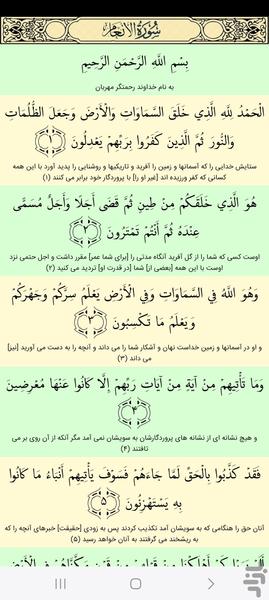 سُورَةُ الأَنعَام
بِسْمِ اللَّهِ الرَّحْمَنِ الرَّحِيمِ
به نام خداوند رحمتگر مهربان
الْحَمْدُ لِلَّهِ الَّذِي خَلَقَ السَّمَاوَاتِ وَالْأَرْضَ وَجَعَلَ الظُّلُمَاتِ
وَالنُّورَ ثُمَّ الَّذِينَ كَفَرُوا بِرَبِّهِمْ يَعْدِلُونَ ﴿۱﴾
ستایش خدایی را که آسمانها و زمین را آفرید و تاریکیها و روشنایی را پدید آورد با این همه
کسانی که کفر ورزیده اند [غیر او را] با پروردگار خود برابر می کنند (۱)
هُوَ الَّذِي خَلَقَكُمْ مِنْ طِينٍ ثُمَّ قَضَى أَجَلًا وَأَجَلٌ مُسَمًّى
عِنْدَهُ ثُمَّ أَنْتُمْ تَمْتَرُونَ ﴿۲﴾
اوست کسی که شما را از گل آفرید آنگاه مدتی را [برای شما عمر] مقرر داشت و اجل حتمی نزد
اوست با این همه [بعضی از] شما [در قدرت او] تردید می کنید (۲)
وَهُوَ اللَّهُ فِي السَّمَاوَاتِ وَفِي الْأَرْضِ يَعْلَمُ سِرَّكُمْ وَجَهْرَكُمْ
وَيَعْلَمُ مَا تَكْسِبُونَ ﴿۳﴾
و او در آسمانها و زمین خداست نهان و آشکار شما را می داند و آنچه را به دست می آورید [نیز]
می داند (۳)
وَمَا تَأْتِيهِمْ مِنْ آيَةٍ مِنْ آيَاتِ رَبِّهِمْ إِلَّا كَانُوا عَنْهَا مُعْرِضِينَ
﴿۴﴾
و هیچ نشانه ای از نشانه های پروردگارشان به سویشان نمی آمد مگر آنکه از آن روی بر می
تافتند (۴)
فَقَدْ كَذَّبُوا بِالْحَقِّ لَمَّا جَاءَهُمْ فَسَوْفَ يَأْتِيهِمْ أَنْبَاءُ مَا كَانُوا
بِهِ يَسْتَهْزِئُونَ ﴿۵﴾
آنان حق را هنگامی که به سویشان آمد تکذیب کردند پس به زودی [حقیقت] خبرهای آنچه را که
به ریشخند می گرفتند به آنان خواهد رسید (۵)
أَلَمْ يَرَوْا كَمْ أَهْلَكْنَا مِنْ قَبْلِهِمْ مِنْ قَرْنٍ مَكَّنَّاهُمْ فِي الْأَرْضِ
بازار